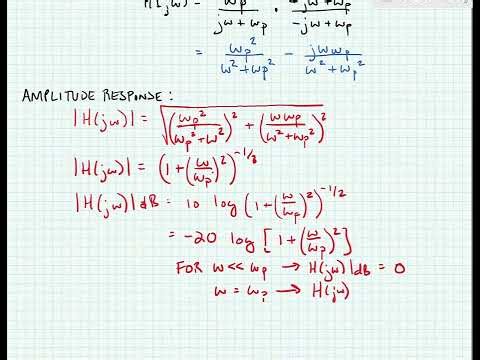 H(jω) = ωp / jω + ωp · -jω + ωp / -jω + ωp
= ωp² / ω² + ωp² - jωωp / ω² + ωp²
AMPLITUDE RESPONSE:
|H(jω)| = √((ωp² / ωp² + ω²)² + (ωωp / ω² + ωp²)²)
|H(jω)| = (1 + (ω/ωp)²)^-1/2
|H(jω)|dB = 10 log (1 + (ω/ωp)²)^-1/2
= -20 log [1 + (ω/ωp)²]
FOR ω << ωp → H(jω)|dB = 0
ω = ωp → H(jω)